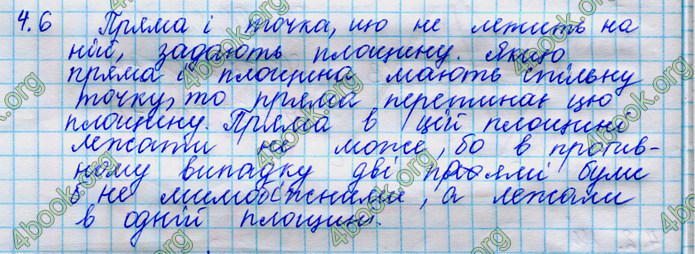 4.6 Пряма і точка, що не лежить на
ній, задають площину. Якщо
пряма і площина мають спільну
точку, то пряма перетинає цю
площину. Пряма в цій площині
лежати не може, бо в против-
ному випадку дві прямі були
б не мимобіжними, а лежали
в одній площині.
4book.org